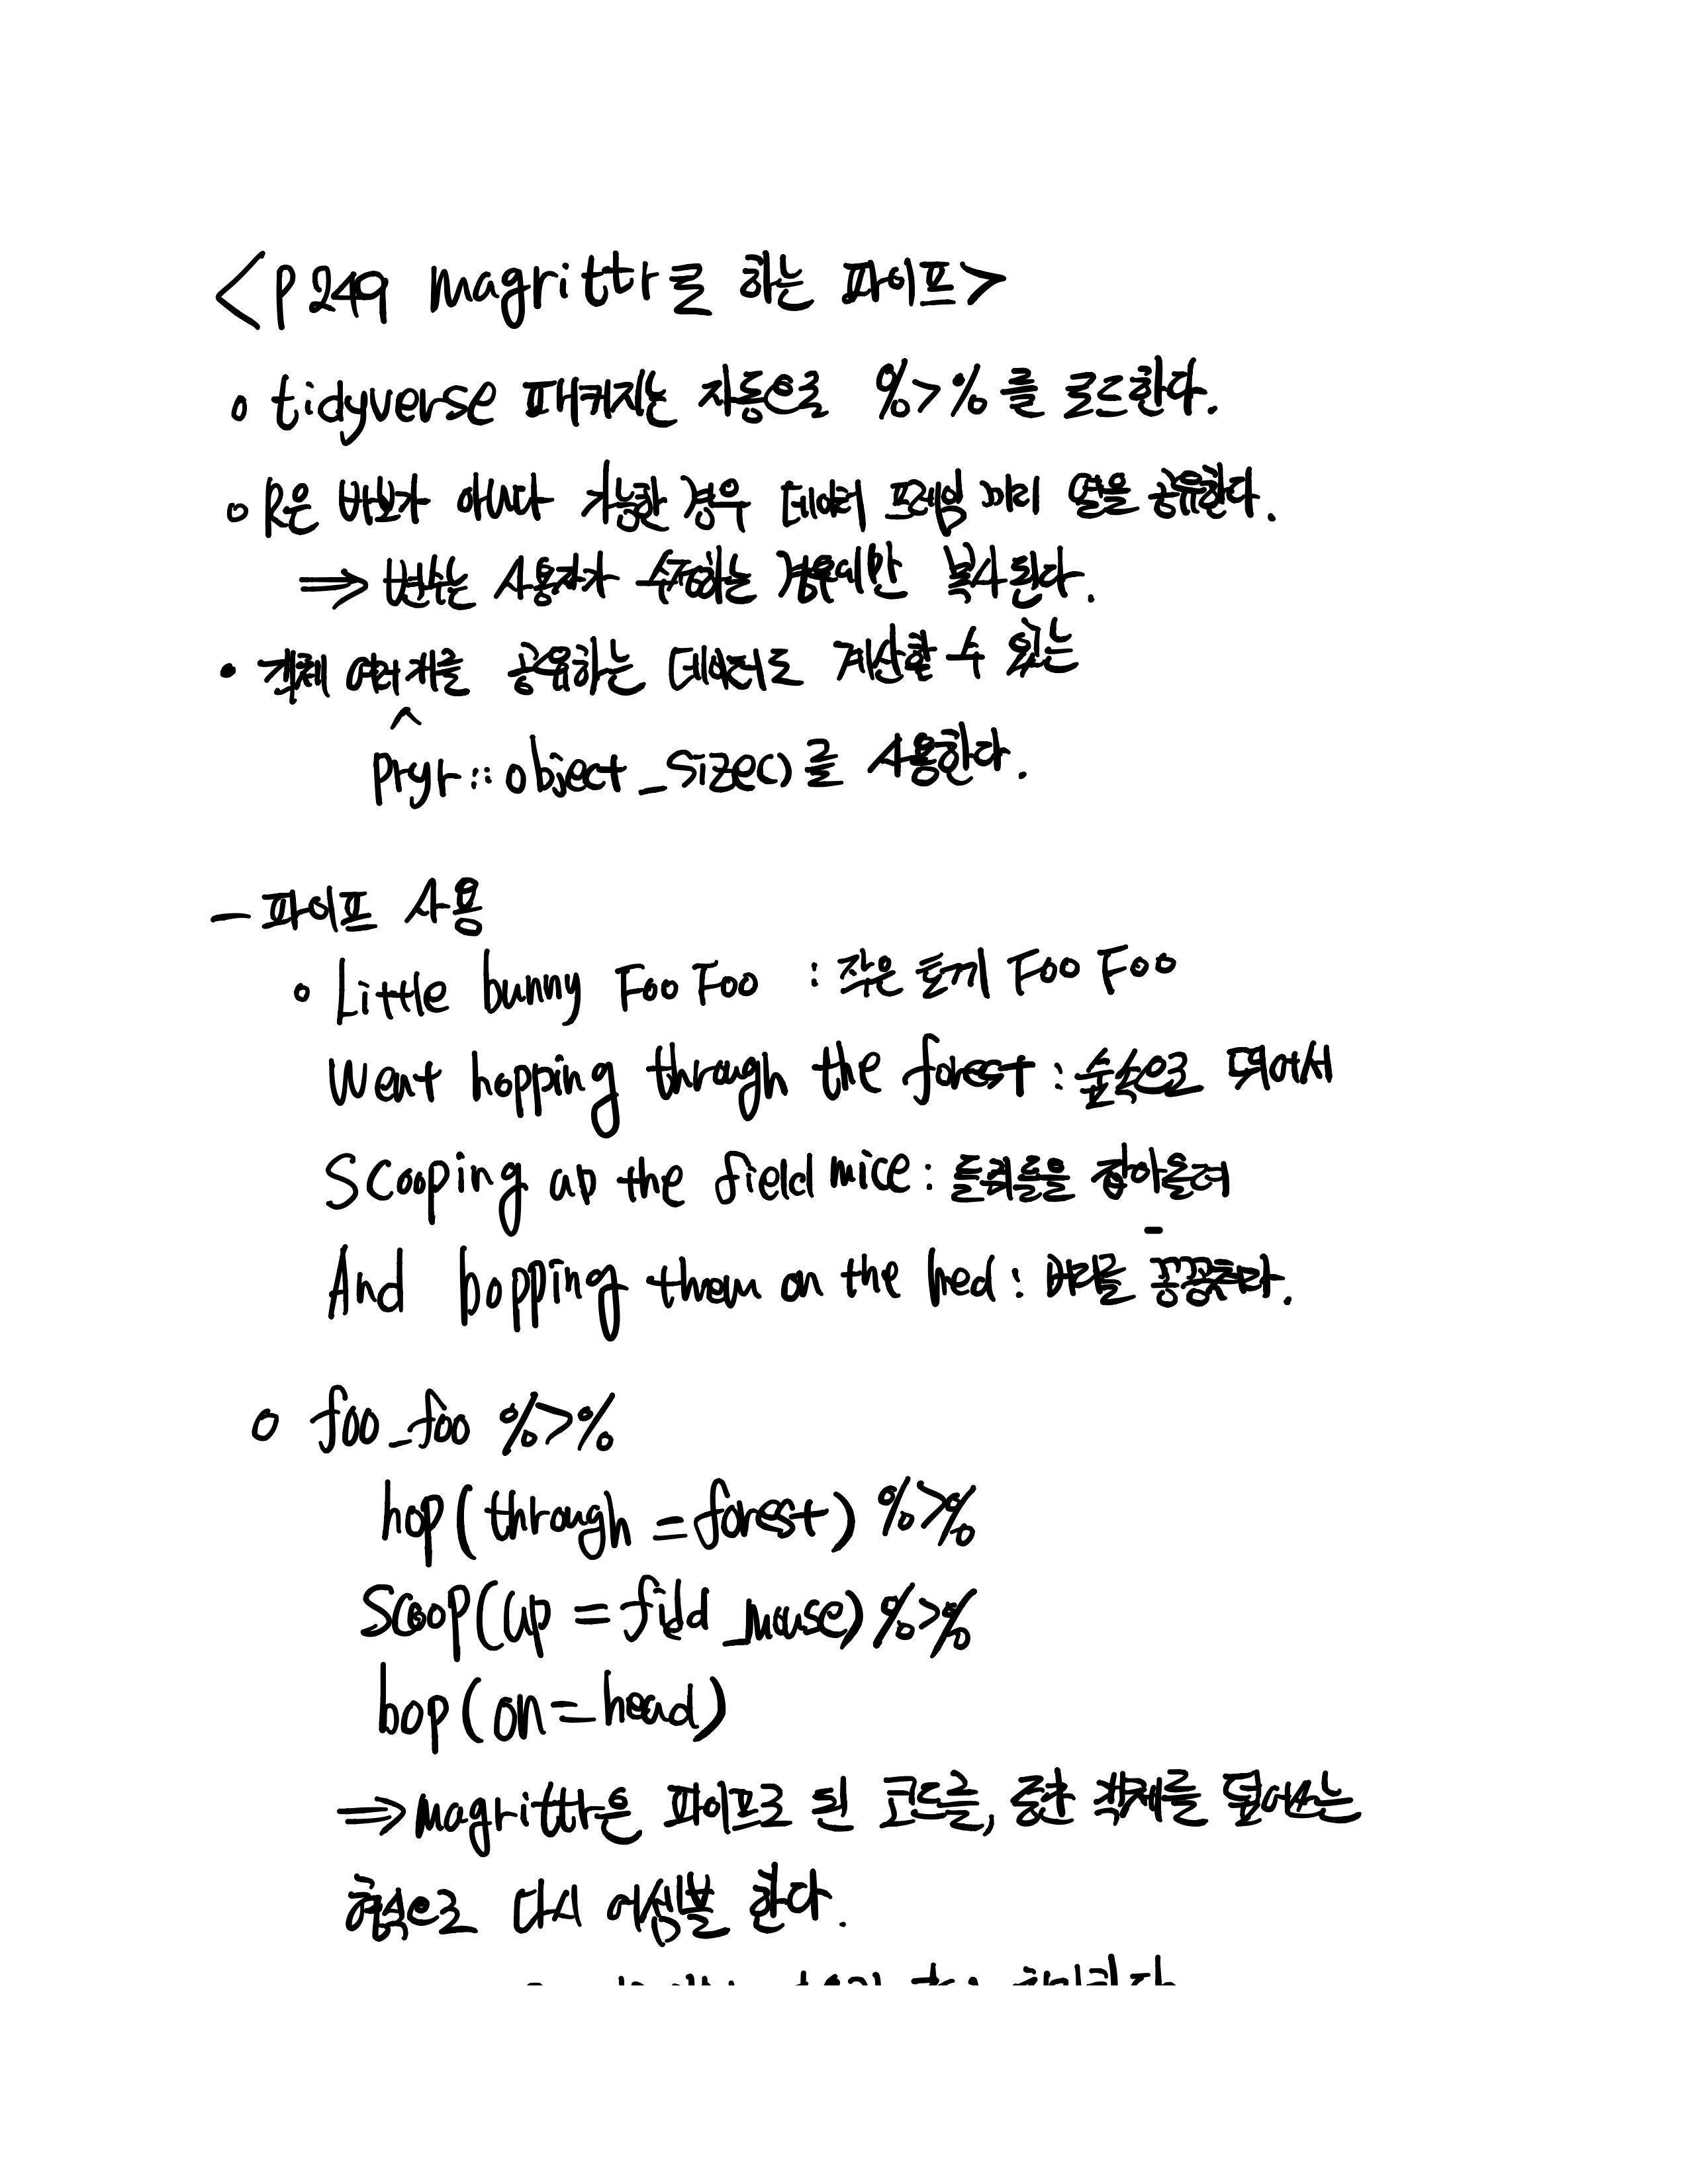 <P 249 magrittr로 하는 파이프>
o tidyverse 패키지는 자동으로 %>%를 로드한다.
o R은 바보가 아니다 가능한 경우 데이터 프레임 끼리 열을 공유한다.
⇒ 변수는 사용자가 수정하는 경우에만 복사된다.
• 객체 여러개를 공유하는 데이터도 계산할 수 있는
^
pryr::object_size()를 사용한다.
- 파이프 사용
• Little bunny Foo Foo : 작은 토끼 Foo Foo
Went hopping through the forest : 숲속으로 뛰어서
Scooping up the field mice : 들쥐들을 잡아올려
And bopping them on the hed : 머리를 꽁꽁친다.
o foo_foo %>%
hop(through = forest) %>%
scoop(up = field_mouse) %>%
bop(on = head)
⇒ magrittr은 파이프로 된 코드를, 중간 객체를 덮어쓰는
형식으로 다시 어셈블 한다.